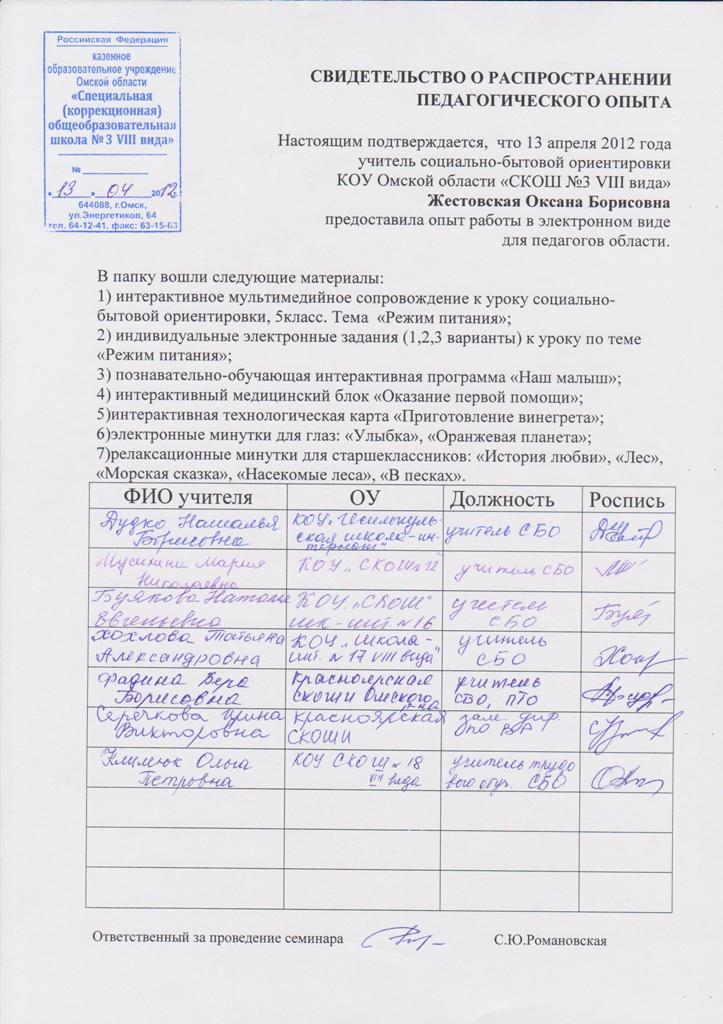 Российская Федерация
казенное
образовательное учреждение
Омской области
«Специальная
(коррекционная)
общеобразовательная
школа №3 VIII вида»
№
«13» 04 2012г.
644088, г.Омск,
ул.Энергетиков, 64
тел. 64-12-41, факс: 63-15-63
СВИДЕТЕЛЬСТВО О РАСПРОСТРАНЕНИИ
ПЕДАГОГИЧЕСКОГО ОПЫТА
Настоящим подтверждается, что 13 апреля 2012 года
учитель социально-бытовой ориентировки
КОУ Омской области «СКОШ №3 VIII вида»
Жестовская Оксана Борисовна
предоставила опыт работы в электронном виде
для педагогов области.
В папку вошли следующие материалы:
1) интерактивное мультимедийное сопровождение к уроку социально-
бытовой ориентировки, 5класс. Тема «Режим питания»;
2) индивидуальные электронные задания (1,2,3 варианты) к уроку по теме
«Режим питания»;
3) познавательно-обучающая интерактивная программа «Наш малыш»;
4) интерактивный медицинский блок «Оказание первой помощи»;
5)интерактивная технологическая карта «Приготовление винегрета»;
6)электронные минутки для глаз: «Улыбка», «Оранжевая планета»;
7)релаксационные минутки для старшеклассников: «История любви», «Лес»,
«Морская сказка», «Насекомые леса», «В песках».
ФИО учителя ОУ Должность Роспись
Дудко Наталья КОУ „Исилькуль- учитель СБО
Борисовна ская школа-ин-
тернат"
Мусихина Мария КОУ „СКОШ №12" учитель СБО
Николаевна
Буякова Наталья КОУ „СКОШ" учитель
Евгеньевна шк-инт №16 СБО
Хохлова Татьяна КОУ „Школа- учитель
Александровна инт. №17 VIII вида" СБО
Фадина Вера Красноярская учитель
Борисовна СКОШИ Омского СБО, ПТО
р-на
Серечкова Ирина Красноярская зам. дир
Викторовна СКОШИ по ВР
Климюк Ольга КОУ СКОШ №18 учитель трудо
Петровна VIII вида вого обуч. СБО
Ответственный за проведение семинара С.Ю.Романовская